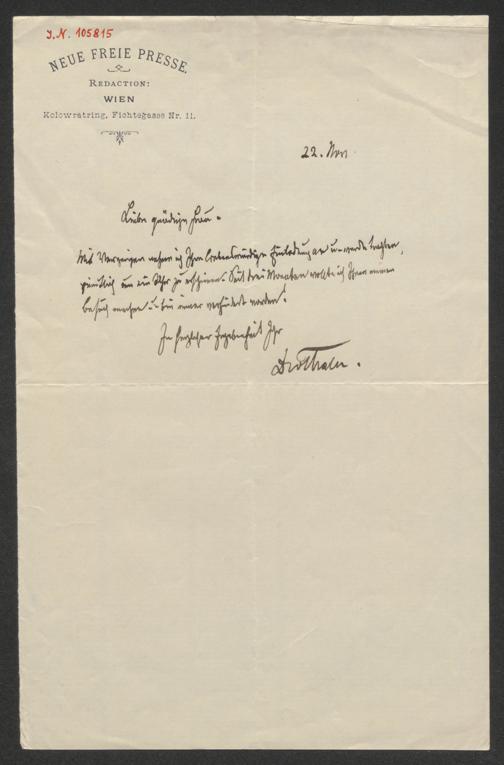 I.N. 105815
NEUE FREIE PRESSE.
REDACTION:
WIEN
Kolowratring, Fichtegasse Nr. 11.
22. Nov.
Liebe gnädige Frau.
Mit Vergnügen nehme ich Ihre liebenswürdige Einladung an u. werde trachten,
pünktlich um ein Uhr zu erscheinen. Seit drei Monaten wollte ich Ihnen einen
Besuch machen u. bin immer verhindert worden.
In herzlicher Ergebenheit Ihr